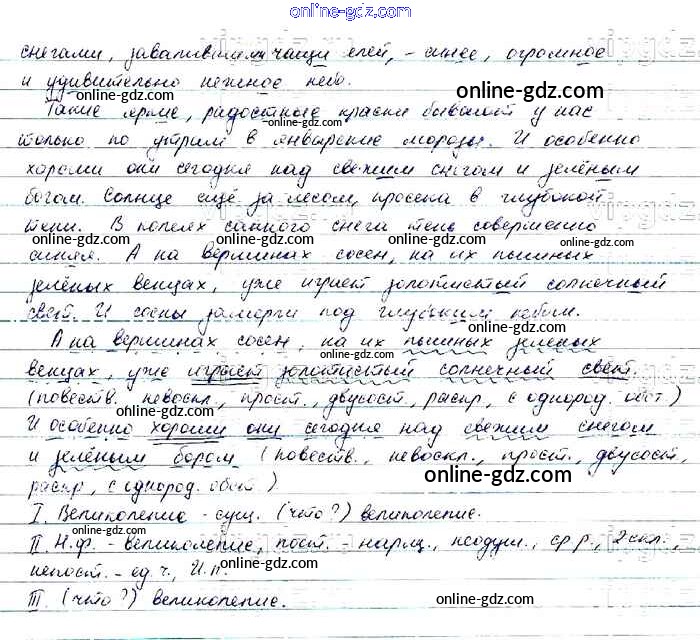 online-gdz.com
снегами, завалившими чащи елей, - синее, огромное
и удивительно нежное небо.
Такие яркие, радостные краски бывают у нас
только по утрам в январские морозы. И особенно
хороши они сегодня над свежим снегом и зелёным
богом. Солнце ещё за лесом, просека в глубокой
тени. В колеях санного снега тень совершенно
синяя. А на вершинах сосен, на их пышных
зелёных венцах, уже играет золотистый солнечный
свет. И сосны замерли под глубоким небом.
А на вершинах сосен, на их пышных зеленых
венцах, уже играет золотистый солнечный свет.
(повеств. невоскл., прост., двусост., распр., с однород. обст.)
И особенно хороши они сегодня над свежим снегом
и зелёным бором (повеств., невоскл., прост., двусост.,
распр., с однород. обст.)
I. Великолепие - сущ. (что?) великолепие.
II. Н.ф. - великолепие, пост. - нариц., неодуш., ср.р., 2 скл.,
непост. - ед.ч., И.п.
III. (что?) великолепие.
online-gdz.com